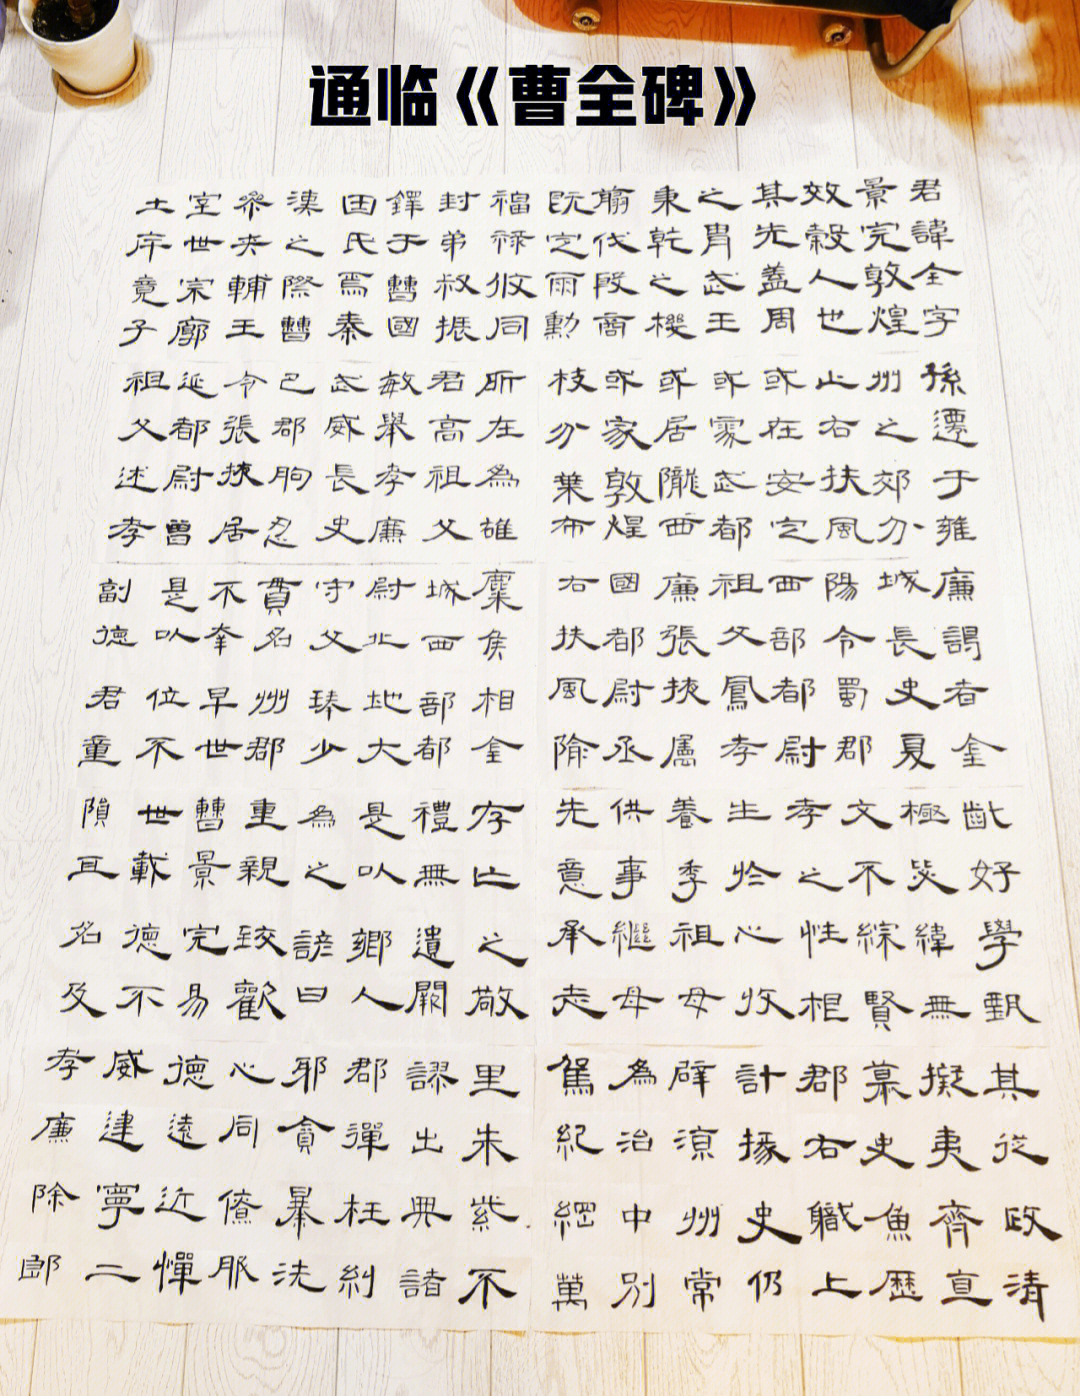 通临《曹全碑》
君諱全字
景完敦煌
效穀人也
其先蓋周
之胄武王
秉乾之機
翦伐殷商
既定爾勳
福祿攸同
封弟叔振
鐸于曹國
因氏焉秦
漢之際曹
參夾輔王
室世宗廓
土斥竟子
孫遷于雍
州之郊分
止右扶風
或在安定
或處武都
或居隴西
或家敦煌
枝分葉布
所在為雄
君高祖父
敏舉孝廉
武威長史
巴郡朐忍
令張掖居
延都尉曾
祖父述孝
廉謁者金
城長史夏
陽令蜀郡
西部都尉
祖父鳳孝
廉張掖屬
國都尉丞
右扶風隃
麋侯相金
城西部都
尉北地大
守父琫少
貫名州郡
不幸早世
是以位不
副德君童
齔好學甄
極毖緯無
文不綜賢
孝之性根
生於心收
養季祖母
供事繼母
先意承志
存亡之敬
禮無遺闕
是以鄉人
為之諺曰
重親致歡
曹景完易
世載德不
隕其名及
其從政清
擬夷齊直
慕史魚歷
郡右職上
計掾史仍
辟涼州常
為治中別
駕紀綱萬
里朱紫不
謬出典諸
郡彈枉糾
邪貪暴洗
心同僚服
德遠近憚
威建寧二
孝廉除郎